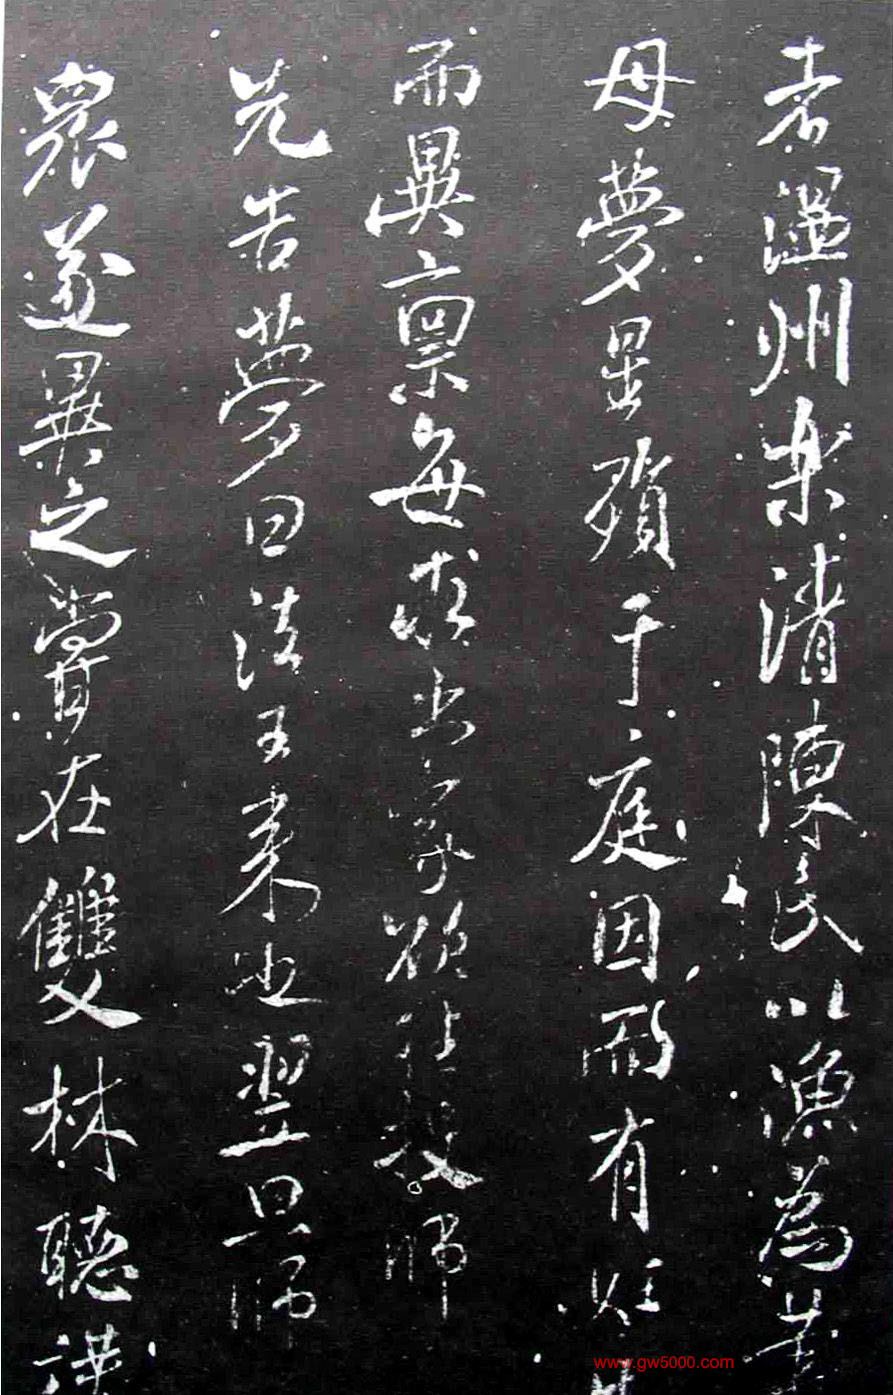 者溫州樂清陳氏以漁為業
母夢星殞于庭因而有妊生
而異稟每求出家欲往投師
先告夢曰法王來也翌旦師
眾遂異之嘗在雙林聽講
www.gw5000.com